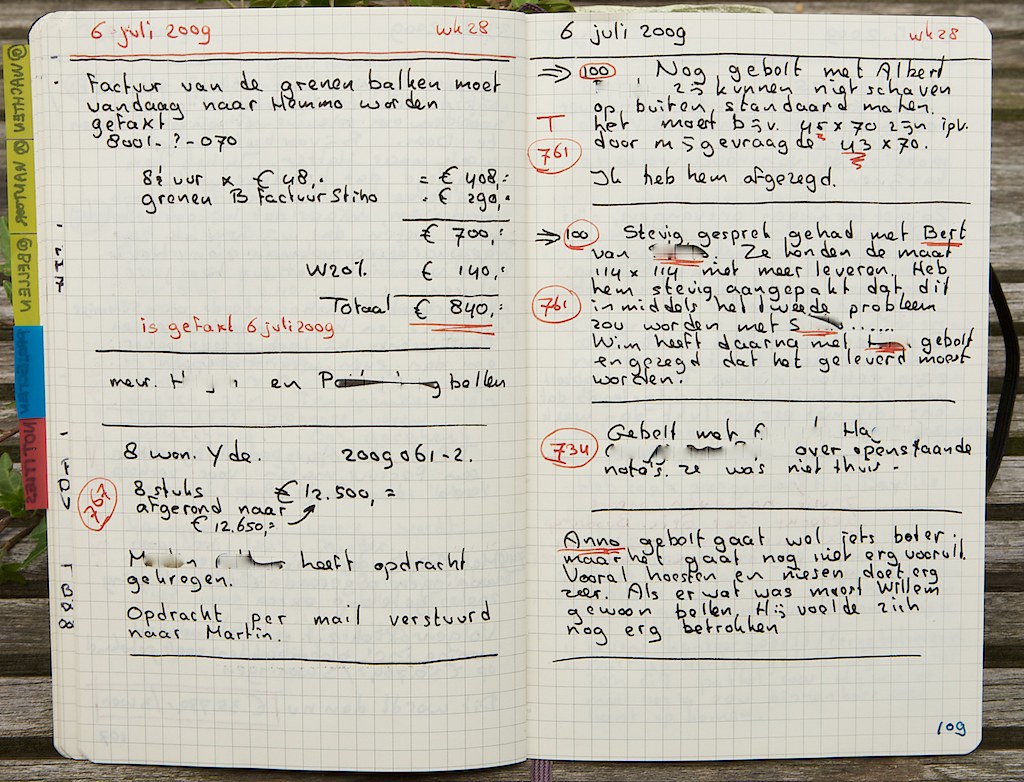 6 juli 2009 wk 28
Factuur van de grenen balken moet
vandaag naar Hemmo worden
gefaxt
8001-?-070
8½ uur x € 48,- = € 408,-
grenen B factuur Stiho € 290,-
€ 700,-
W20% € 140,-
Totaal € 840,-
is gefaxt 6 juli 2009
mevr. en bellen
8 won. Yde. 2009061-2.
767
8 stuks € 12.500,=
afgerond naar
€ 12.650,=
heeft opdracht
gekregen.
Opdracht per mail verstuurd
naar Martin.
@MACHTEN
@BELLEN
6 juli 2009 wk 28
⇒ 100 Nog gebolt met Albert
zij kunnen niet schaven
op buiten standaard maten.
T het moest bijv. 45 x 70 zijn ipv.
761 door mij gevraagde 43 x 70.
Ik heb hem afgezegd.
⇒ 100 Stevig gesprek gehad met Bert
van Ze konden de maat
114 x 114 niet meer leveren. Heb
hem stevig aangepakt dat dit
761 inmiddels het tweede probleem
zou worden met S
Wim heeft daarna met gebolt
en gezegd dat het geleverd moest
worden.
734 Gebolt met
over openstaande
nota's. ze was niet thuis -
Anno gebolt gaat wel iets beter
maar het gaat nog niet erg vooruit.
Vooral hoesten en niesen doet erg
zeer. Als er wat was moest Willem
gewoon bellen. Hij voelde zich
nog erg betrokken
109